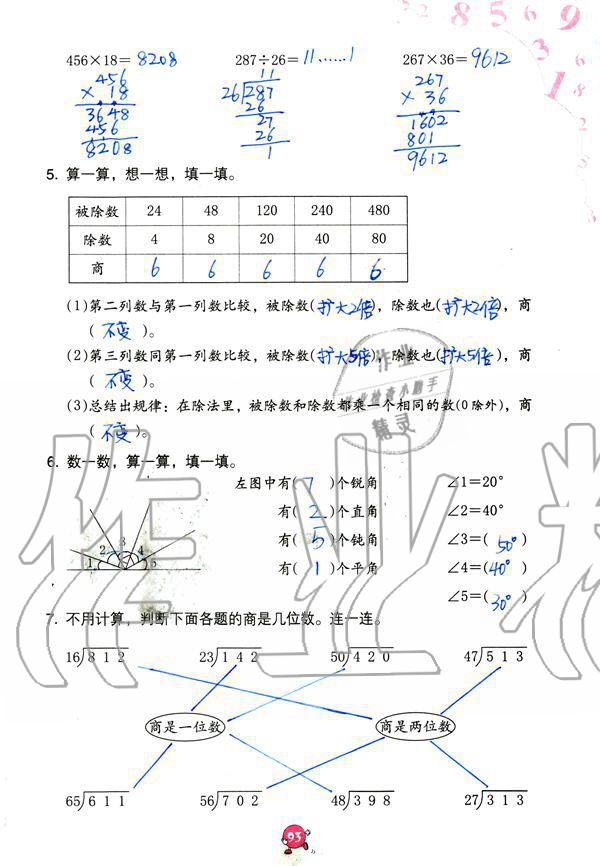 456×18=8208 287÷26=11……1 267×36=9612
456 11 267
×18 26 287 ×36
3648 26 1602
456 27 801
8208 26 9612
1
5. 算一算，想一想，填一填。
被除数 24 48 120 240 480
除数 4 8 20 40 80
商 6 6 6 6 6
(1)第二列数与第一列数比较，被除数(扩大2倍)，除数也(扩大2倍)，商
(不变)。
(2)第三列数同第一列数比较，被除数(扩大5倍)，除数也(扩大5倍)，商
(不变)。
(3)总结出规律：在除法里，被除数和除数都乘一个相同的数(0除外)，商
(不变)。
作业
作业检查小助手
精灵
6. 数一数，算一算，填一填。
左图中有(7)个锐角 ∠1=20°
有(2)个直角 ∠2=40°
有(5)个钝角 ∠3=(50°)
有(1)个平角 ∠4=(40°)
∠5=(30°)
1 2 3 4 5
7. 不用计算，判断下面各题的商是几位数。连一连。
16 812 23 142 50 420 47 513
商是一位数 商是两位数
65 611 56 702 48 398 27 313
93